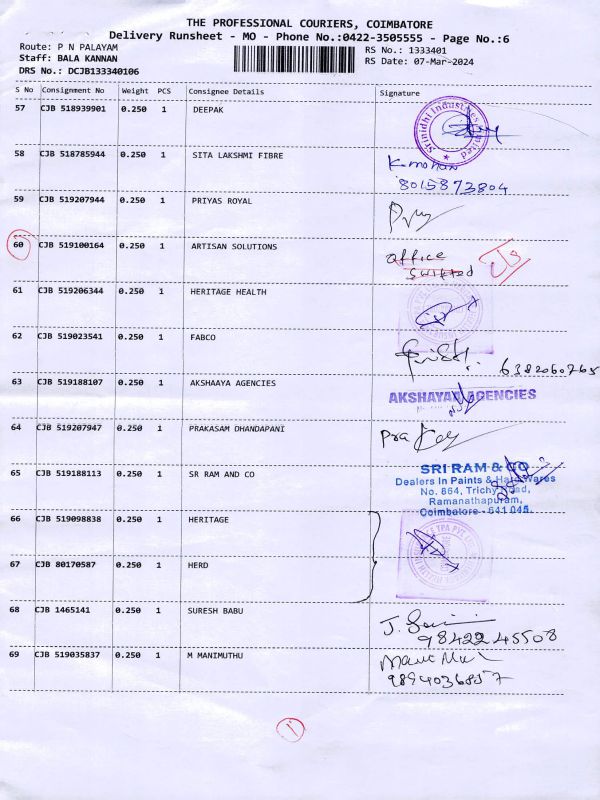 THE PROFESSIONAL COURIERS, COIMBATORE
Delivery Runsheet - MO - Phone No.:0422-3505555 - Page No.:6
Route: P N PALAYAM
RS No.: 1333401
Staff: BALA KANNAN
RS Date: 07-Mar-2024
DRS No.: DCJB133340106
S No Consignment No Weight PCS Consignee Details Signature
57 CJB 518939901 0.250 1 DEEPAK
Srinidhi Industries Limited
58 CJB 518785944 0.250 1 SITA LAKSHMI FIBRE K. mohan
8015873804
59 CJB 519207944 0.250 1 PRIYAS ROYAL
60 CJB 519100164 0.250 1 ARTISAN SOLUTIONS office
Shifted
61 CJB 519206344 0.250 1 HERITAGE HEALTH
62 CJB 519023541 0.250 1 FABCO
6382060765
63 CJB 519188107 0.250 1 AKSHAAYA AGENCIES AKSHAYAA AGENCIES
64 CJB 519207947 0.250 1 PRAKASAM DHANDAPANI
65 CJB 519188113 0.250 1 SR RAM AND CO SRI RAM & CO
Dealers In Paints & Hardwares
No. 864, Trichy Road,
Ramanathapuram,
Coimbatore - 641 045.
66 CJB 519098838 0.250 1 HERITAGE
67 CJB 80170587 0.250 1 HERD
68 CJB 1465141 0.250 1 SURESH BABU
9842245508
69 CJB 519035837 0.250 1 M MANIMUTHU
9894036857
1